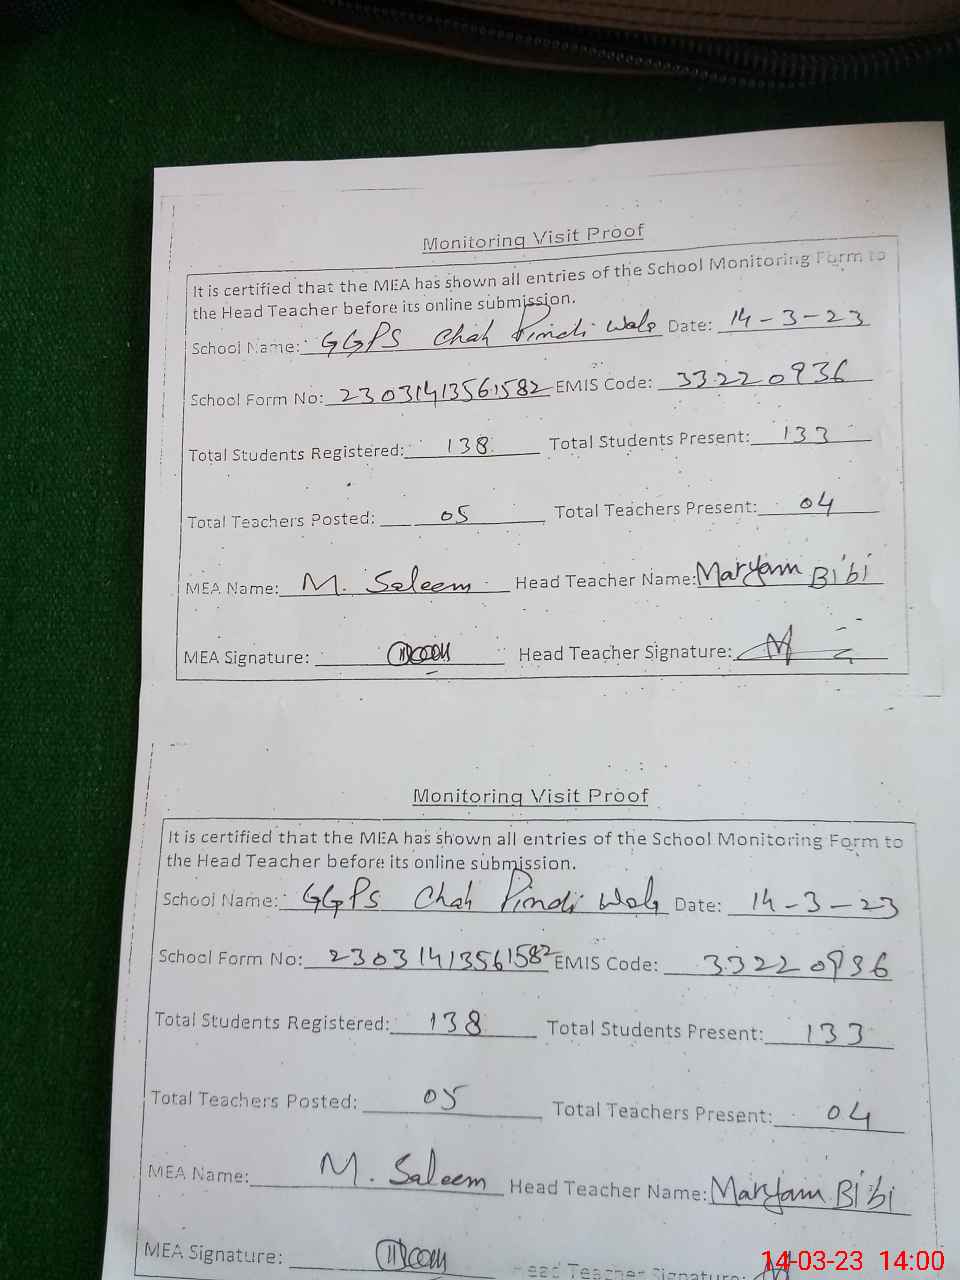 Monitoring Visit Proof
It is certified that the MEA has shown all entries of the School Monitoring Form to
the Head Teacher before its online submission.
School Name: GGPS Chah Pindi Wala Date: 14-3-23
School Form No: 23031413561582 EMIS Code: 33220936
Total Students Registered: 138 Total Students Present: 133
Total Teachers Posted: 05 Total Teachers Present: 04
MEA Name: M. Saleem Head Teacher Name: Maryam Bibi
MEA Signature: Head Teacher Signature:
Monitoring Visit Proof
It is certified that the MEA has shown all entries of the School Monitoring Form to
the Head Teacher before its online submission.
School Name: GGPS Chah Pindi Wala Date: 14-3-23
School Form No: 23031413561582 EMIS Code: 33220936
Total Students Registered: 138 Total Students Present: 133
Total Teachers Posted: 05 Total Teachers Present: 04
MEA Name: M. Saleem Head Teacher Name: Maryam Bibi
MEA Signature: Head Teacher Signature:
14-03-23 14:00